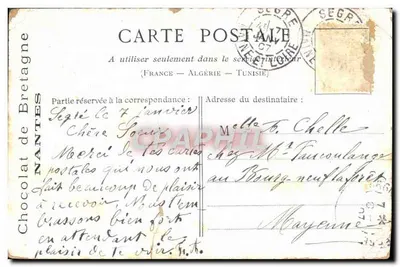 SEGRÉ
MAINE-ET-LOIRE
CARTE POSTALE
A utiliser seulement dans le service intérieur
(FRANCE — ALGÉRIE — TUNISIE)
Chocolat de Bretagne
NANTES
Partie réservée à la correspondance:
Segré le 7 janvier
Chère
Merci de tes cartes
postales qui nous ont
fait beaucoup de plaisir
à recevoir. Nous t'em
brassons bien fort
en attendant le
plaisir de te voir.
Adresse du destinataire:
Melle B. Chelle
chez Mr
au Bourgneuf la forêt
Mayenne